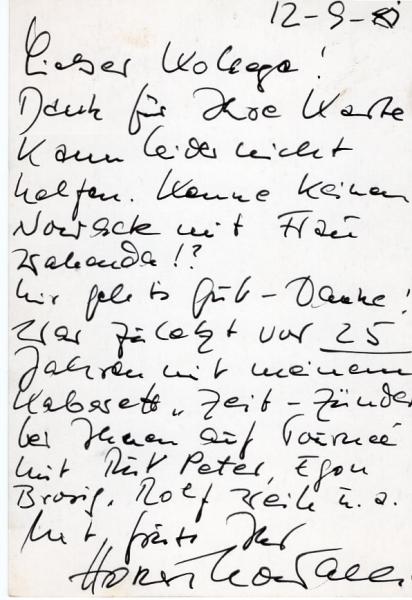 12-9-
Lieber Kollege!
Dank für Ihre Karte
Kann leider nicht
helfen. Kenne keinen
Nowack mit Frau
Wahanda!?
Mir geht's gut - Danke!
War zuletzt vor 25
Jahren mit meinem
Kabarett „Zeit-Zünder
bei Ihnen auf Tournee
mit Rut Peter, Egon
Brosig, Rolf Weih u.a.
Mit Gruß Ihr
Horst